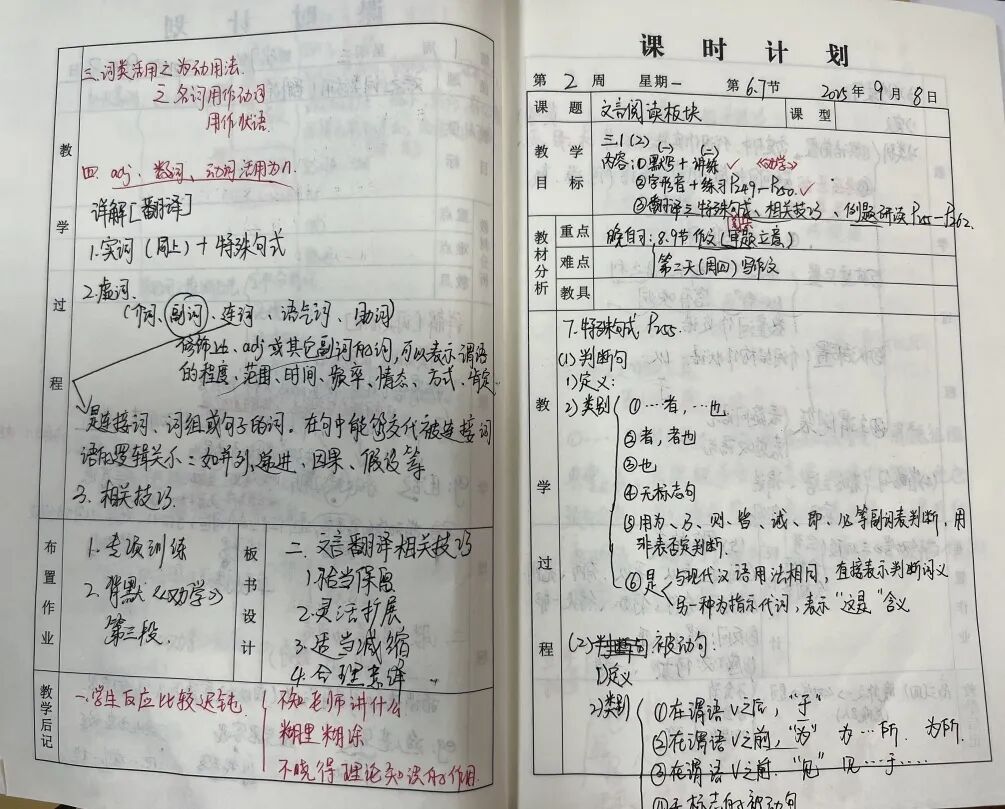 教学过程
三.词类活用之为动用法.
之名词用作动词
用作状语.
四. adj、数词、动词活用为n.
详解[翻译]
1.实词(同上)+特殊句式
2.虚词.
(介词、副词、连词、语气词、助词)
修饰v、adj或其它副词的词,可以表示谓语
的程度、范围、时间、频率、情态、方式、肯定
是连接词、词组或句子的词。在句中能够交代被连接词
语的逻辑关系:如并列、递进、因果、假设等.
3.相关技巧.
布置作业
1.专项训练
2.背默《劝学》
第三段.
板书设计
二.文言翻译相关技巧
1.恰当保留
2.灵活扩展
3.适当减缩
4.合理意译
教学后记
一.学生反应比较迟钝.
不知老师讲什么
糊里糊涂
不晓得理论知识的作用.
课时计划
第2周 星期一 第6.7节 2025年9月8日
课题 文言阅读板块 课型
教学目标
三1(2) (一) (二)
内容:①默写+讲练 ✓ 《劝学》
②字形音+练习P249-P250. ✓
③翻译之特殊句式、相关技巧、例题研读P255-P262.
教材分析
重点 晚自习:8.9节作文(审题立意)
难点 第二天(周四)写作文
教具
教学过程
7.特殊句式 P255.
(1)判断句
1)定义:
2)类别 ①…者,…也
②者,者也
③也
④无标志句
⑤用为、乃、则、皆、诚、即、必等副词表判断,用
非表否定判断.
⑥是 与现代汉语用法相同,直接表示判断词义
另一种为指示代词,表示“这是”含义
(2)被动句.
1)定义
2)类别 ①在谓语V之后,“于”
②在谓语V之前,“为” 为…所. 为所.
③在谓语V之前.“见” 见…于….
④无标志的被动句